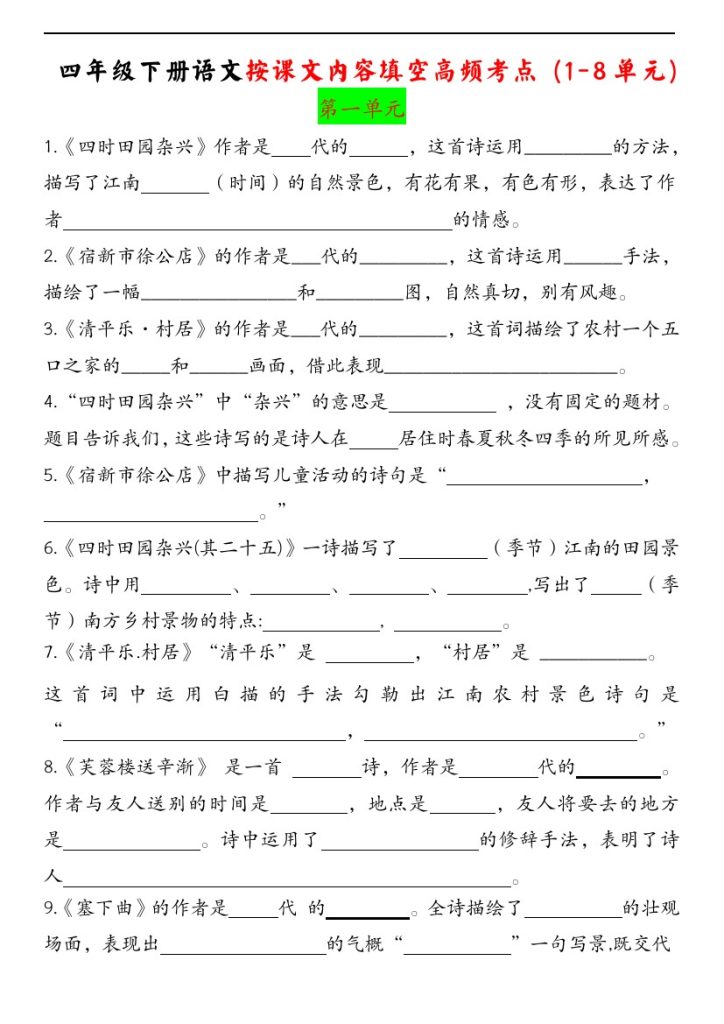 四年级下册语文按课文内容填空高频考点（1-8单元）
第一单元
1.《四时田园杂兴》作者是____代的______，这首诗运用_________的方法，
描写了江南_______（时间）的自然景色，有花有果，有色有形，表达了作
者________________________________________的情感。
2.《宿新市徐公店》的作者是___代的_________，这首诗运用______手法，
描绘了一幅________________和_________图，自然真切，别有风趣。
3.《清平乐·村居》的作者是___代的_________，这首词描绘了农村一个五
口之家的_____和______画面，借此表现________________________。
4.“四时田园杂兴”中“杂兴”的意思是___________ ，没有固定的题材。
题目告诉我们，这些诗写的是诗人在_____居住时春夏秋冬四季的所见所感。
5.《宿新市徐公店》中描写儿童活动的诗句是“____________________，
______________________。”
6.《四时田园杂兴(其二十五)》一诗描写了_________（季节）江南的田园景
色。诗中用_________、________、________、________,写出了_____（季
节）南方乡村景物的特点:____________, ___________。
7.《清平乐.村居》“清平乐”是 _________，“村居”是 ___________。
这首词中运用白描的手法勾勒出江南农村景色诗句是
“_____________________________，____________________________。”
8.《芙蓉楼送辛渐》 是一首 _______诗，作者是________代的_________。
作者与友人送别的时间是________，地点是_______，友人将要去的地方
是______________。诗中运用了________________的修辞手法，表明了诗
人______________________________________________。
9.《塞下曲》的作者是_____代 的_________。全诗描绘了__________的壮观
场面，表现出_________________的气概“___________”一句写景,既交代